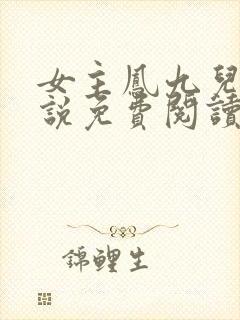 女主鳳九兒
說免費閱讀
錦鯉生